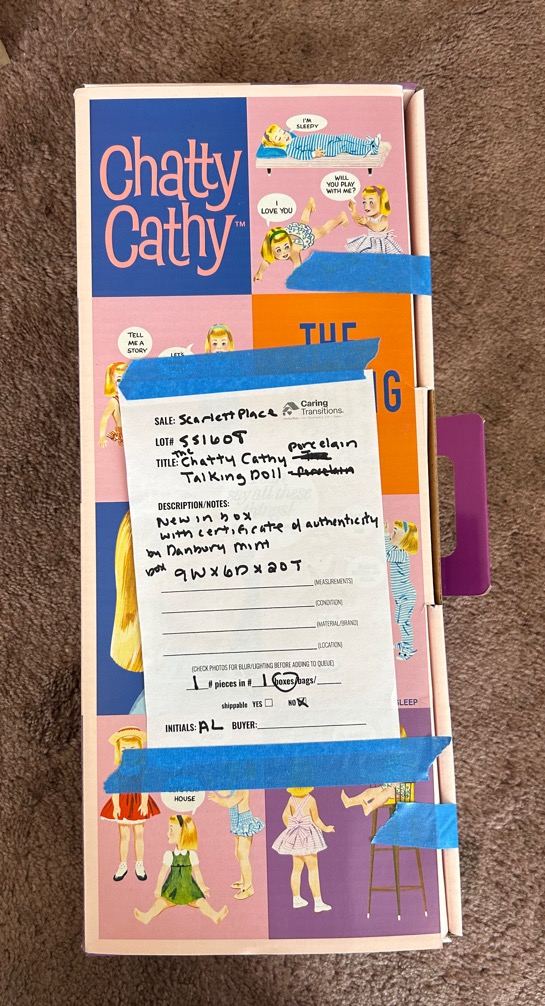 Chatty
Cathy™
I'M
SLEEPY
WILL
YOU PLAY
WITH ME?
I
LOVE YOU
TELL
ME A
STORY
LET'S
THE
G
SALE: Scarlett Place
Caring
Transitions.
LOT# SS160T
TITLE: The Chatty Cathy porcelain
Talking Doll
DESCRIPTION/NOTES:
New in box
with certificate of authenticity
by Danbury mint
box 9W x 6D x 20T
(MEASUREMENTS)
(CONDITION)
(MATERIAL/BRAND)
(LOCATION)
(CHECK PHOTOS FOR BLUR/LIGHTING BEFORE ADDING TO QUEUE)
1 # pieces in # 1 boxes/bags/
shippable YES NO X
INITIALS: AL BUYER:
SLEEP
HOUSE